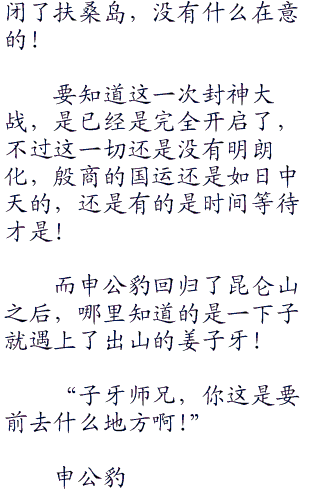 闭了扶桑岛，没有什么在意
的！
要知道这一次封神大
战，是已经是完全开启了，
不过这一切还是没有明朗
化，殷商的国运还是如日中
天的，还是有的是时间等待
才是！
而申公豹回归了昆仑山
之后，哪里知道的是一下子
就遇上了出山的姜子牙！
“子牙师兄，你这是要
前去什么地方啊！”
申公豹